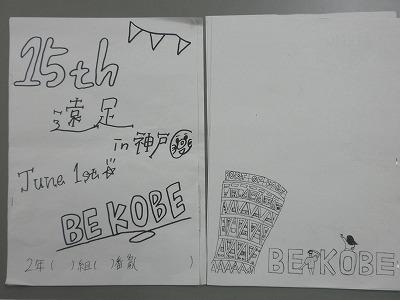 15th
遠足
in 神戸
June 1st
BE KOBE
2年( )組( )番 氏( )
BE KOBE